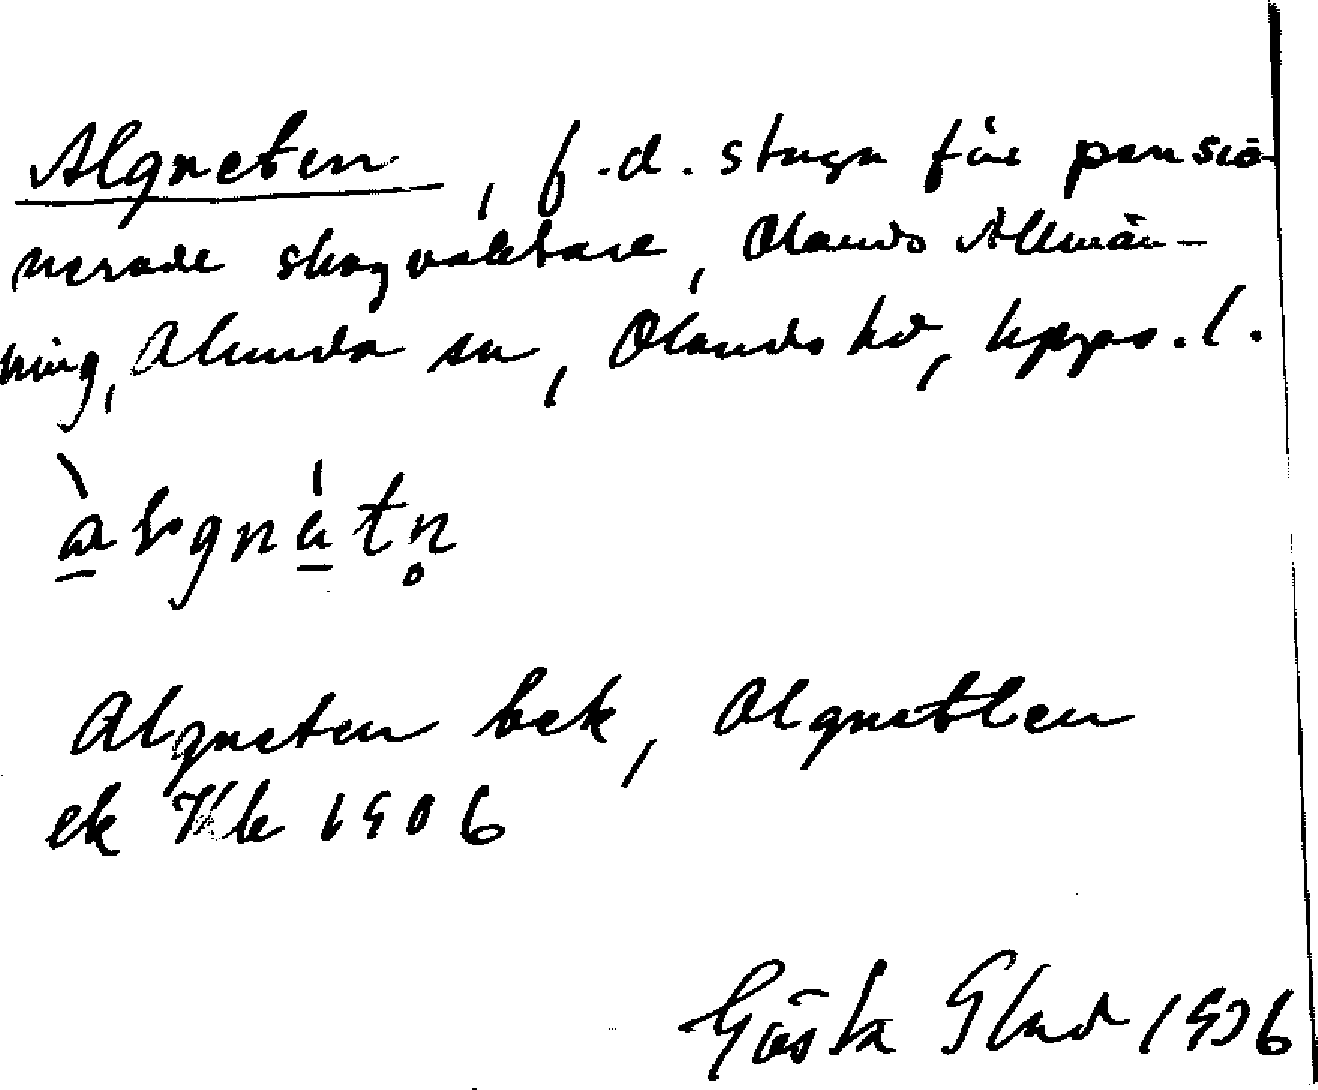 Algneten, f.d. stuga för pensio-
nerade skogvaktare, Olands Allmän-
ning, Alunda sn, Olands hd, Upps. l.
Algneten bek, Olgnetten
ek Hk 1906
Gösta Blad 1936